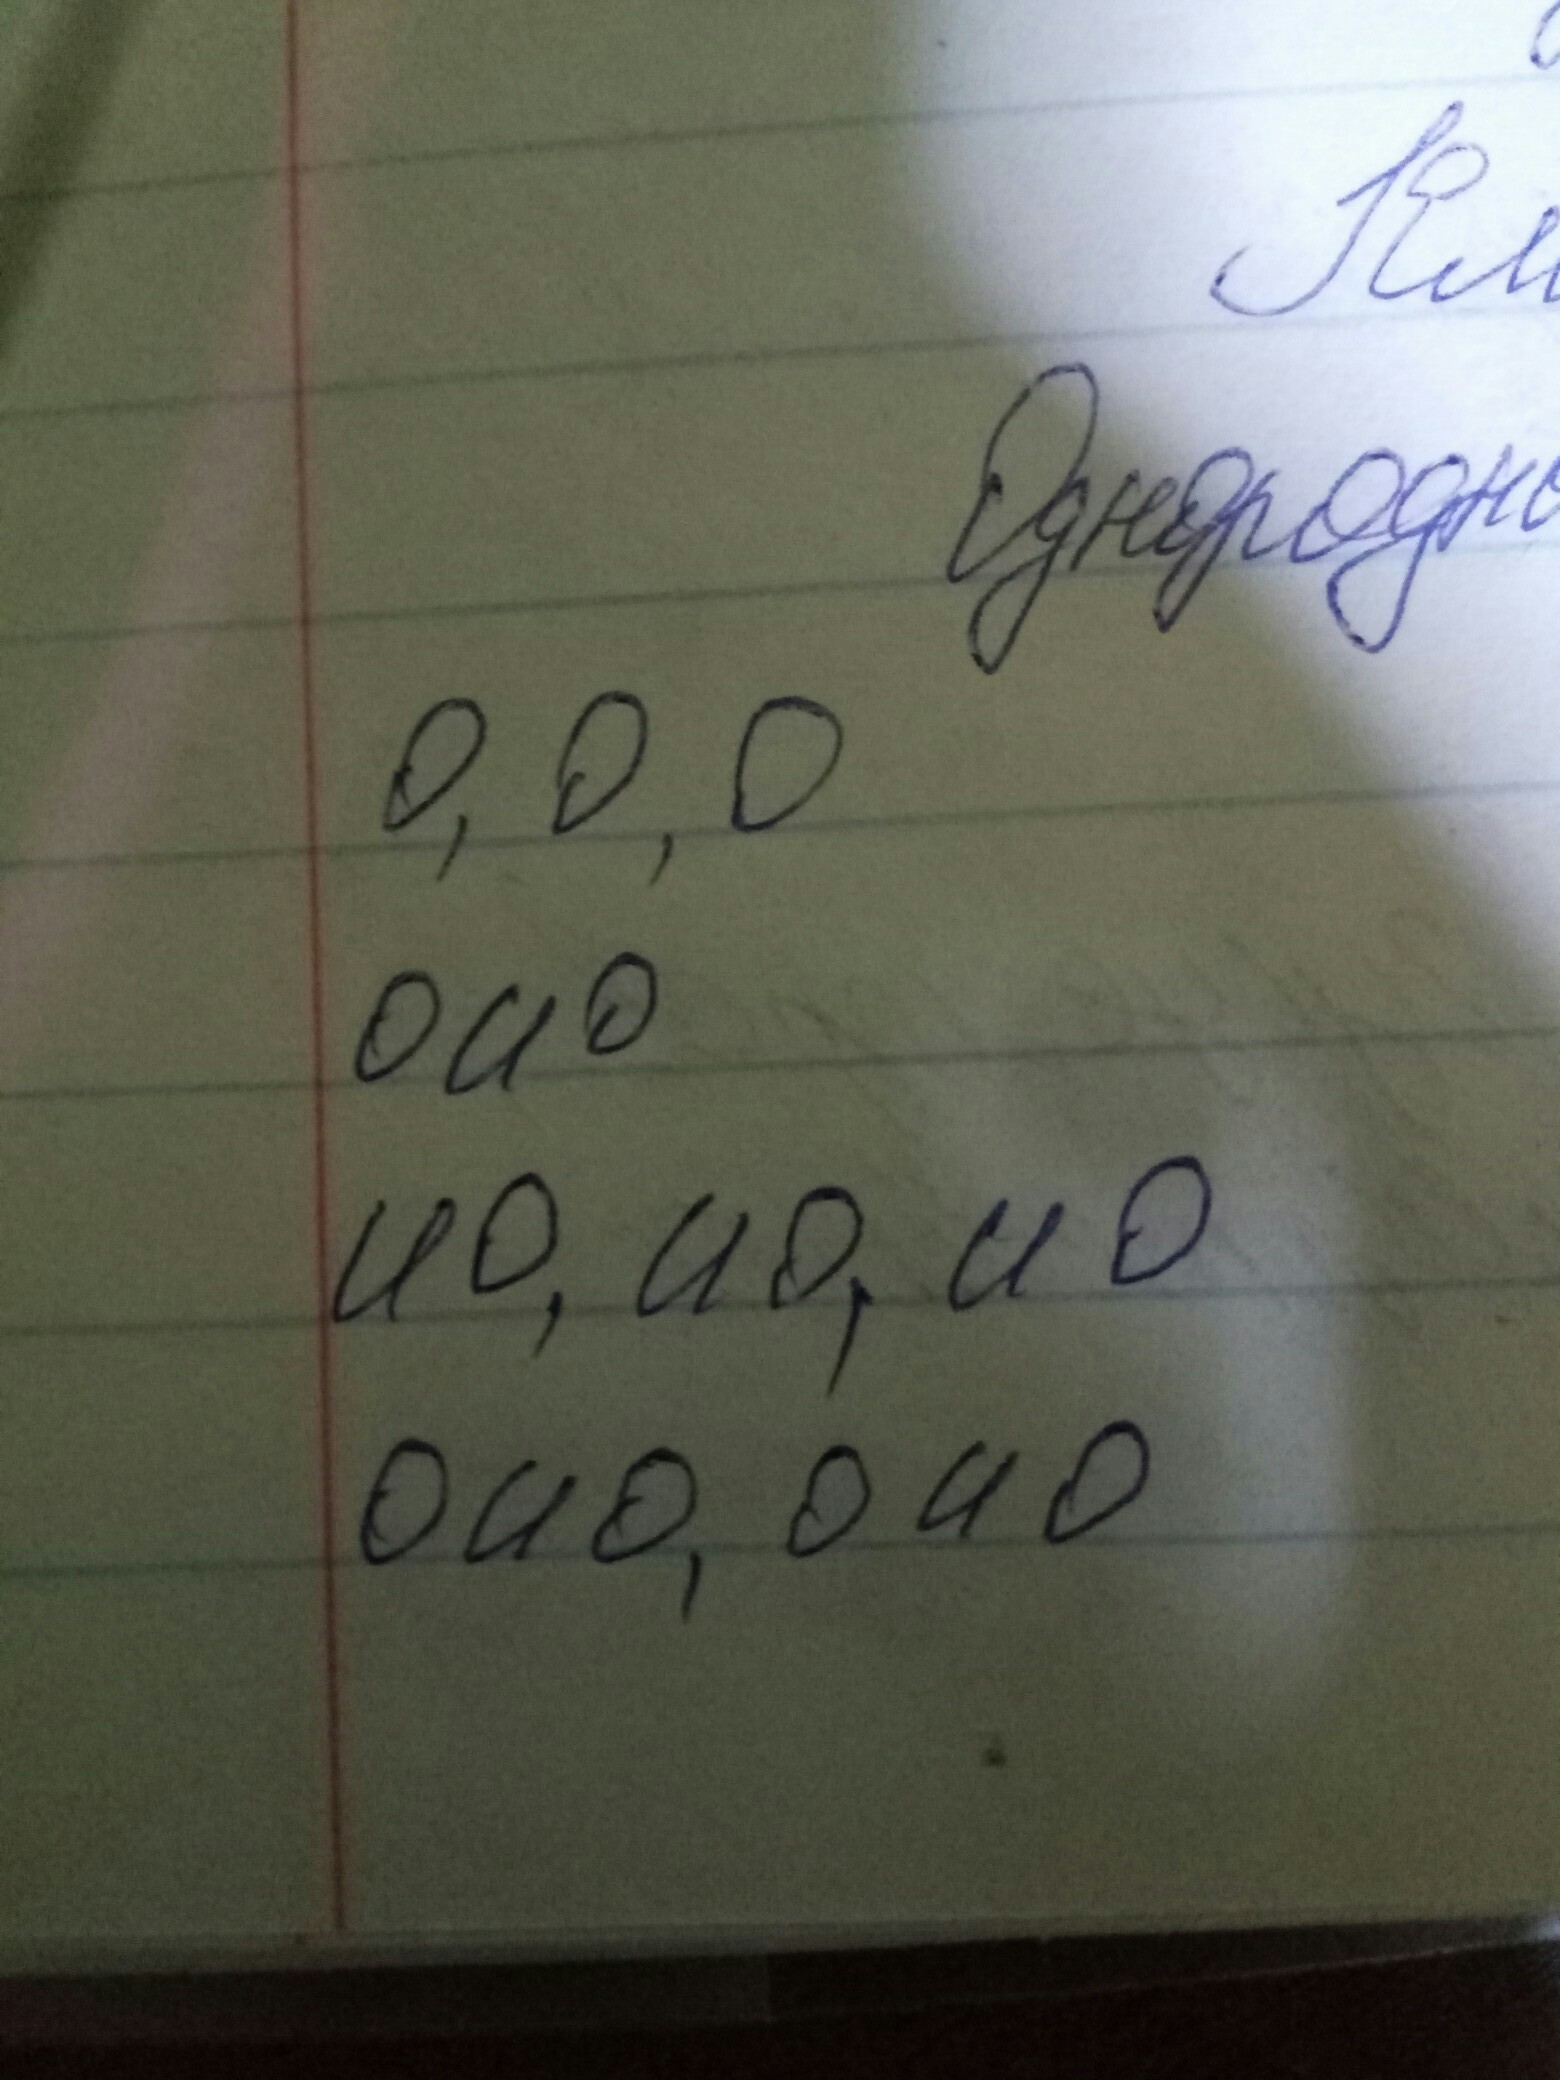 Однородно
О, О, О
О и О
и О, и О, и О
О и О, О и О